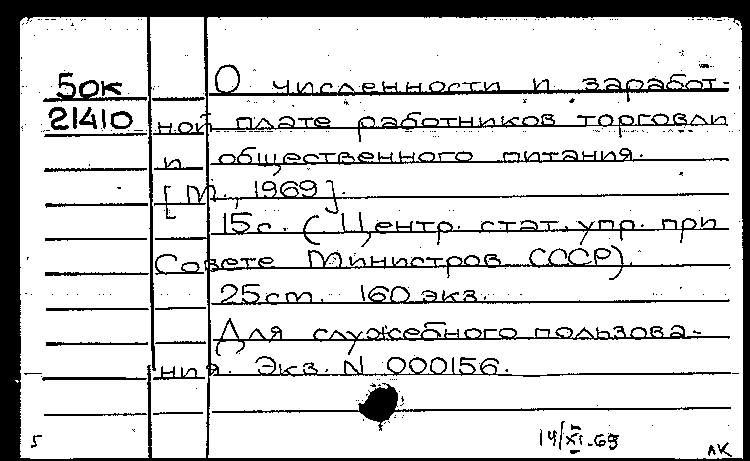 50к
21410
О численности и заработ-
ной плате работников торговли
и общественного питания.
[М., 1969].
15с. (Центр. стат. упр. при
Совете Министров СССР).
25см. 160 экз.
Для служебного пользова-
ния. Экз. N 000156.
5
14/XI-69
лк